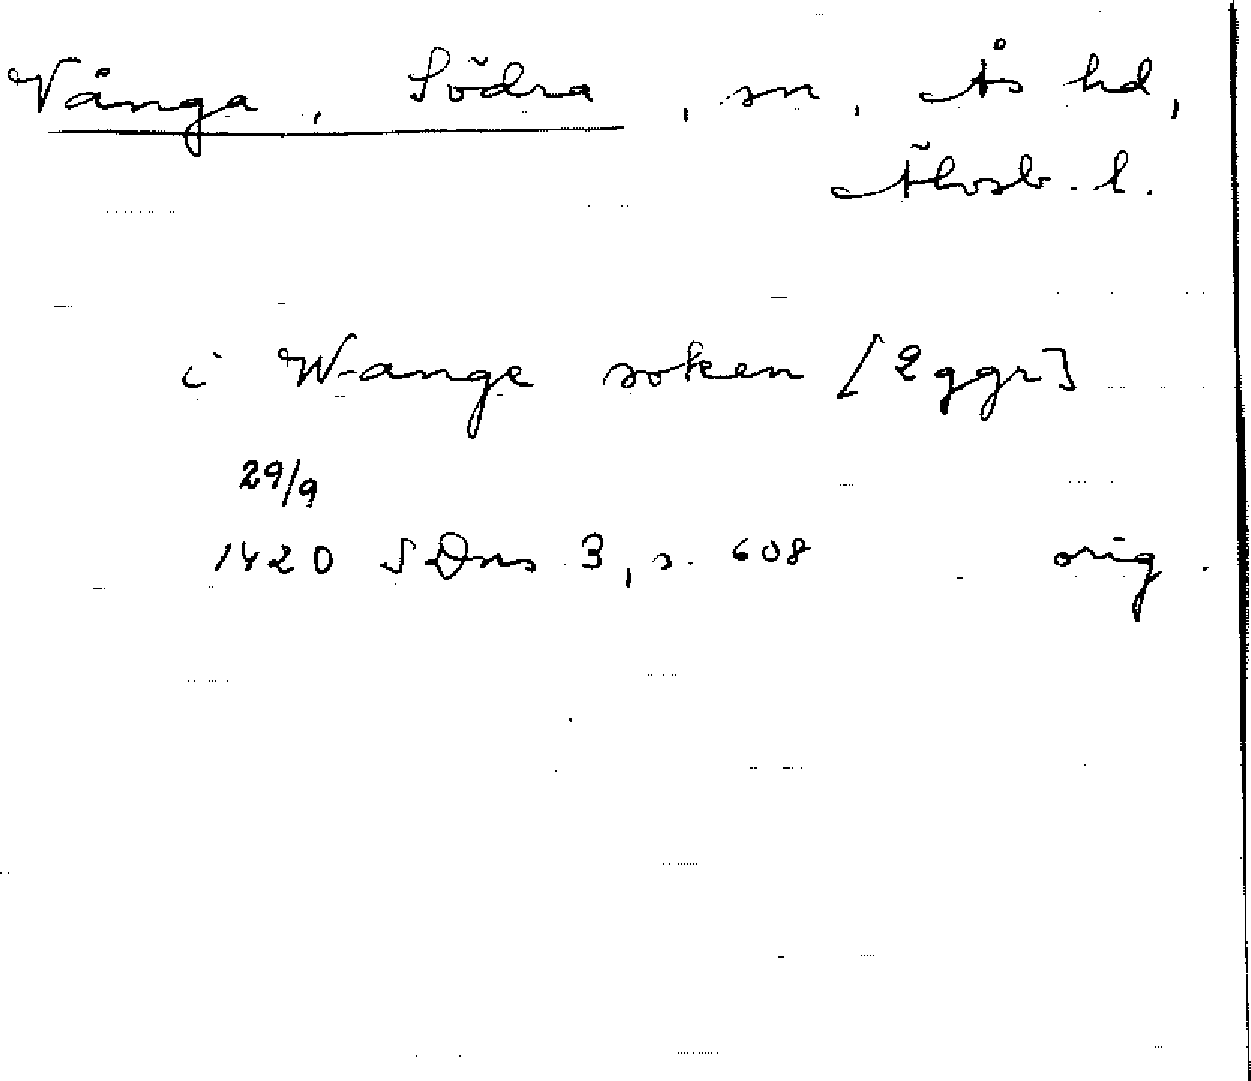 Vånga, Södra, sn, Ås hd,
Älvsb. l.
i Wange soken [2 ggr]
29/9
1420 SDns 3, s. 608 orig.